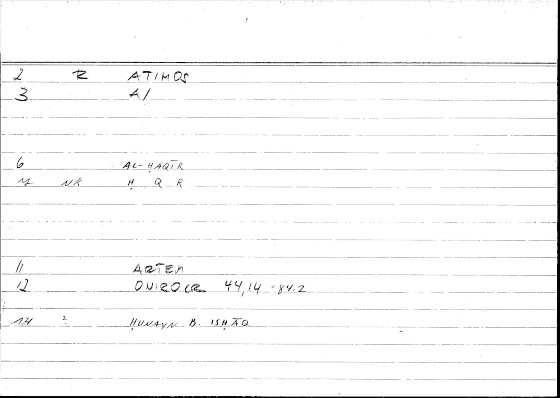 2 R ATIMOS
3 A/
6 AL-ḤAQĪR
7 NR Ḥ Q R
11 ARTEM
12 ONIROCR 44,14 - 84.2
14 2 ḤUNAYN B. ISḤĀQ